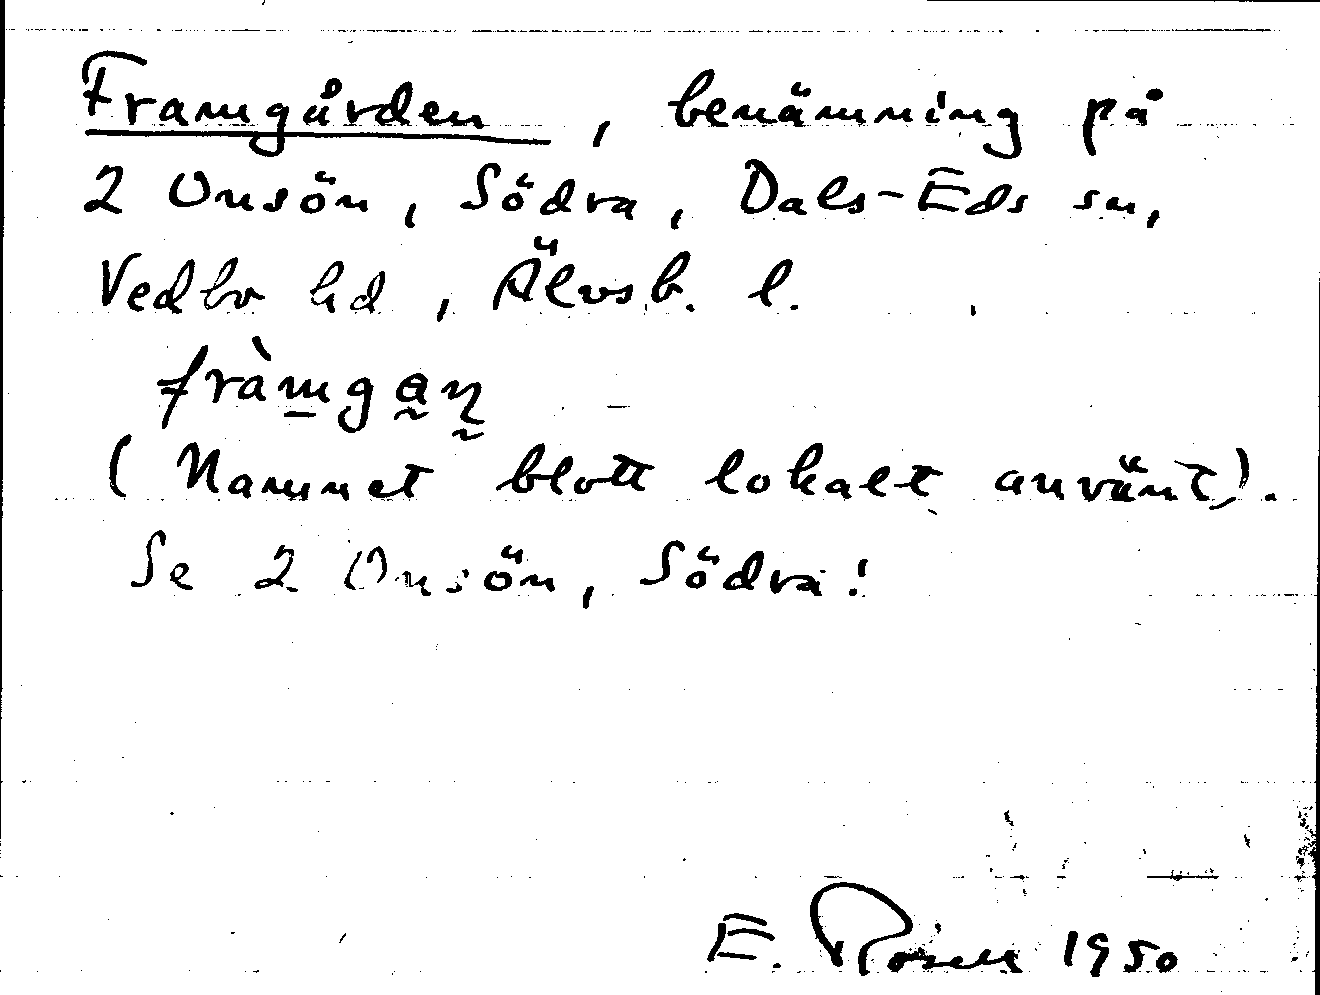 Framgården, benämning på
2 Onsön, Södra, Dals-Eds sn,
Vedbo hd, Älvsb. l.
fràmgan
(Namnet blott lokalt använt).
Se 2 Onsön, Södra!
E. Rosén 1950